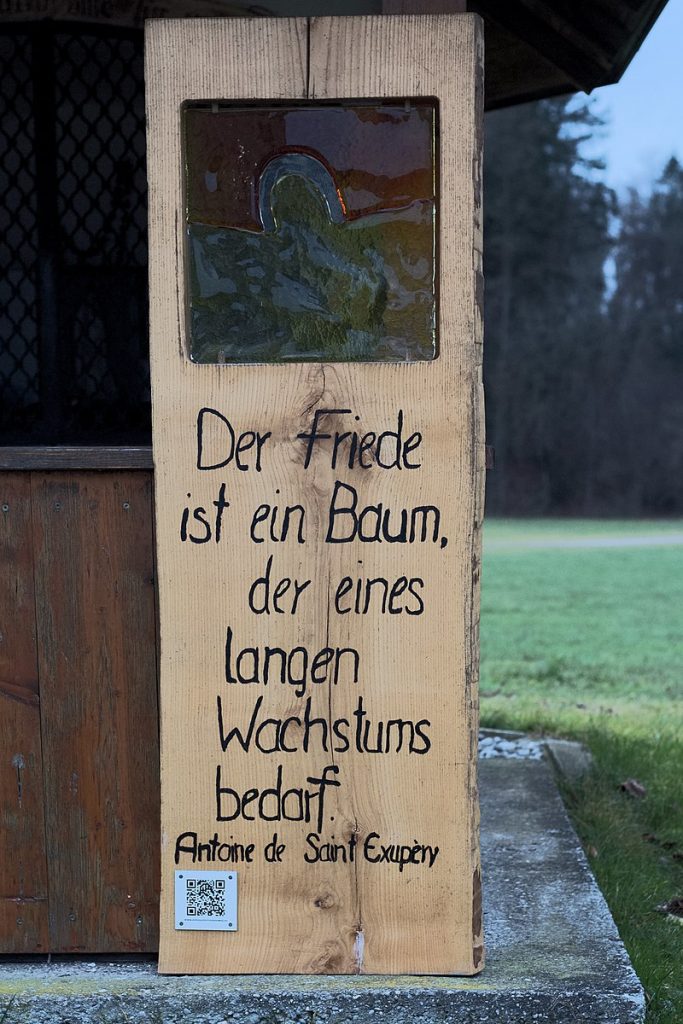 Der Friede
ist ein Baum,
der eines
langen
Wachstums
bedarf.
Antoine de Saint Exupèry